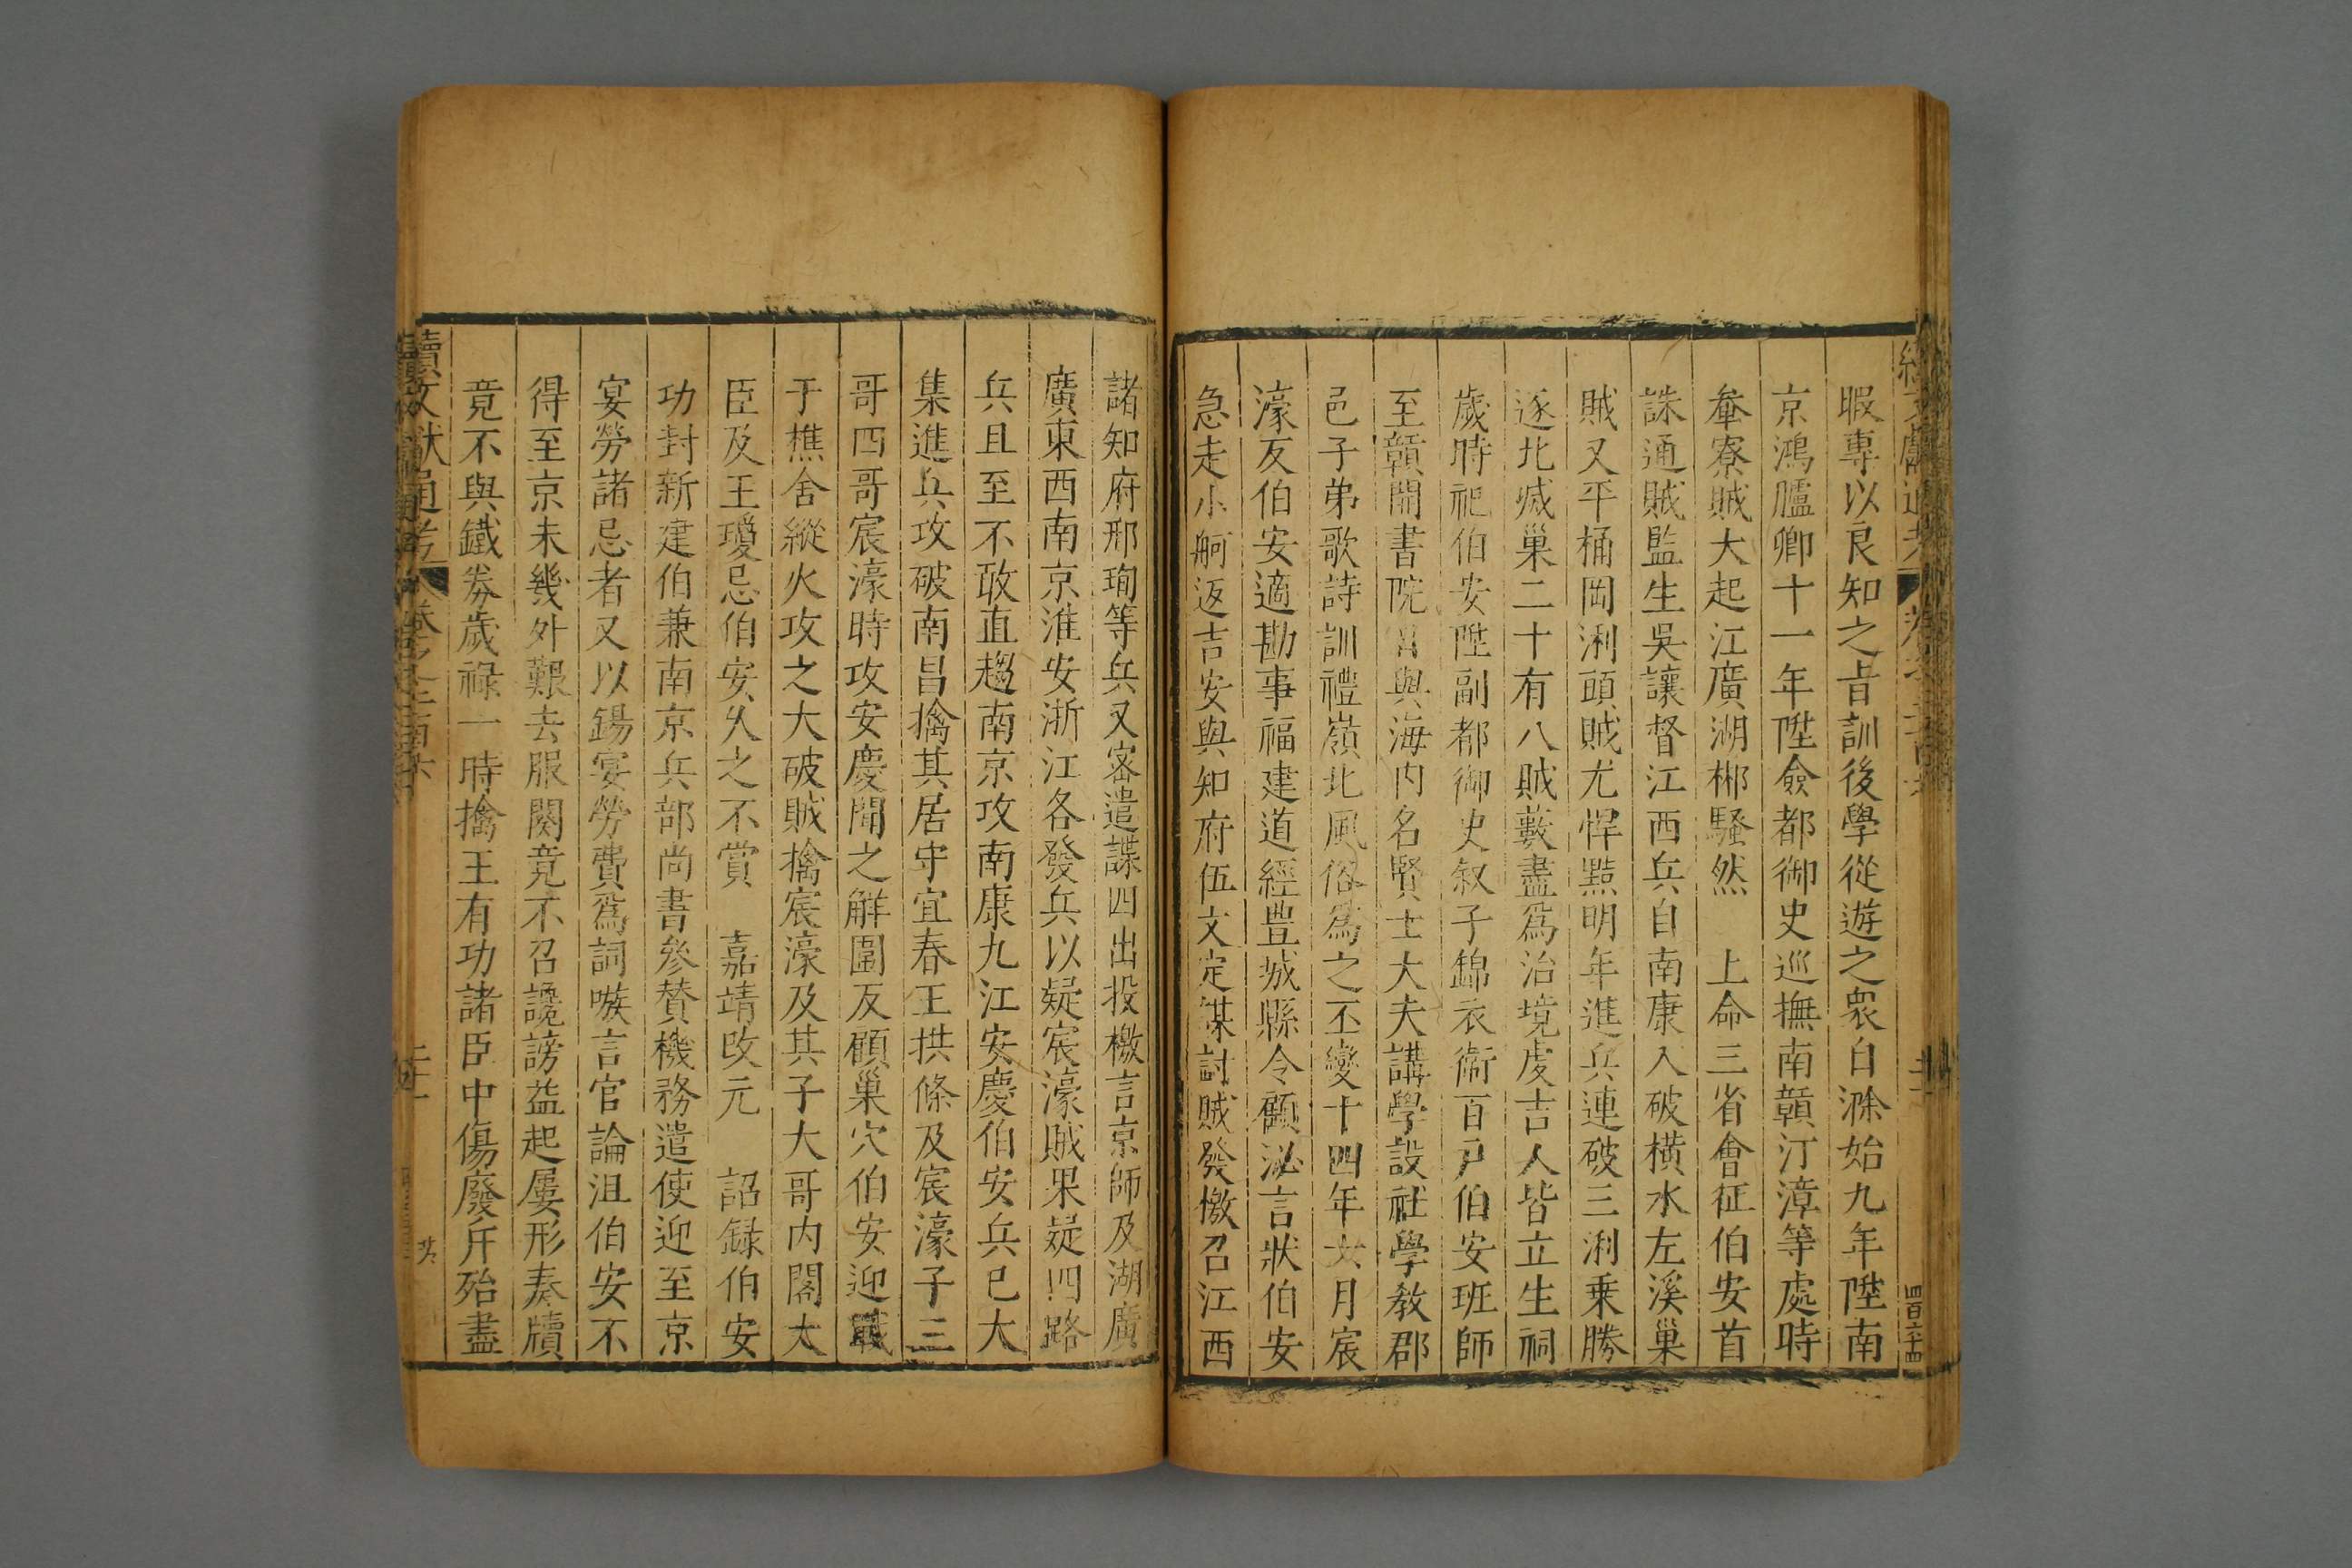 暇專以良知之㫖訓後學從遊之衆自滁始九年陞南
京鴻臚卿十一年陞僉都御史巡撫南贑汀漳等處時
輋寮賊大起江廣湖郴騷然　上命三省會征伯安首
誅通賊監生吳讓督江西兵自南康入破横水左溪巢
賊又平桶岡浰頭賊尤悍黠明年進兵連破三浰乗勝
逐北㓕巢二十有八賊藪盡爲治境虔吉人皆立生祠
歲時祀伯安陞副都御史叙子錦衣衞百戸伯安班師
至贑開書院與海内名賢士大夫講學設社學教郡
邑子弟歌詩訓禮嶺北風俗爲之丕變十四年六月宸
濠反伯安適勘事福建道經豊城縣令顧泌言狀伯安
急走小舸返吉安與知府伍文定謀討賊發檄召江西
諸知府邢珣等兵又宻遣諜四出投檄言京師及湖廣
廣東西南京淮安浙江各發兵以疑宸濠賊果疑四路
兵且至不敢直趨南京攻南康九江安慶伯安兵已大
集進兵攻破南昌擒其居守宜春王拱條及宸濠子三
哥四哥宸濠時攻安慶聞之解圍反顧巢穴伯安迎戰
于樵舍縱火攻之大破賊擒宸濠及其子大哥内閣大
臣及王瓊忌伯安乆之不賞　嘉靖改元　詔録伯安
功封新建伯兼南京兵部尚書參賛機務遣使迎至京
宴勞諸忌者又以錫宴勞費爲詞嗾言官論沮伯安不
得至京未幾外艱去服闋竟不召讒謗益起屢形奏牘
竟不與鐵券歲祿一時擒王有功諸臣中傷廢斥殆盡
續文獻通考